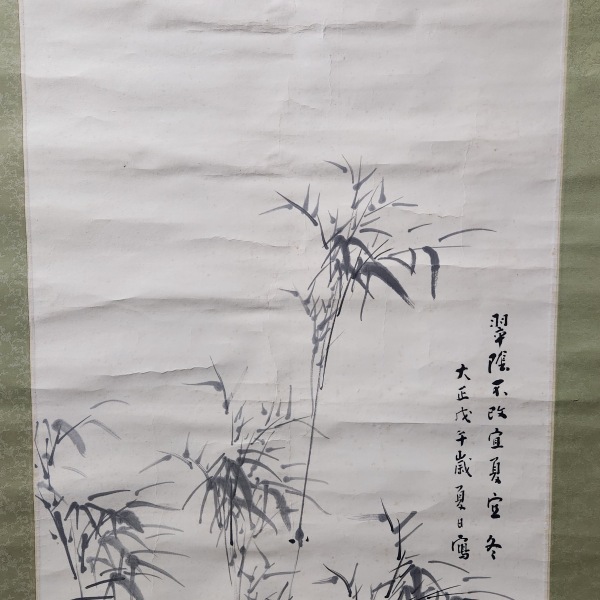 翠陰不改宜夏宜冬
大正戊午歳夏日寫